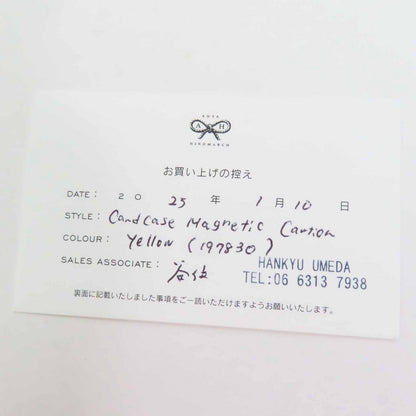 ANYA
A H
HINDMARCH
お買い上げの控え
DATE: 20 25 年 1 月 10 日
STYLE: Card case Magnetic Caution
COLOUR: Yellow (197830)
SALES ASSOCIATE:
HANKYU UMEDA
TEL:06 6313 7938
裏面に記載いたしました事項をご一読いただけますようお願いいたします。